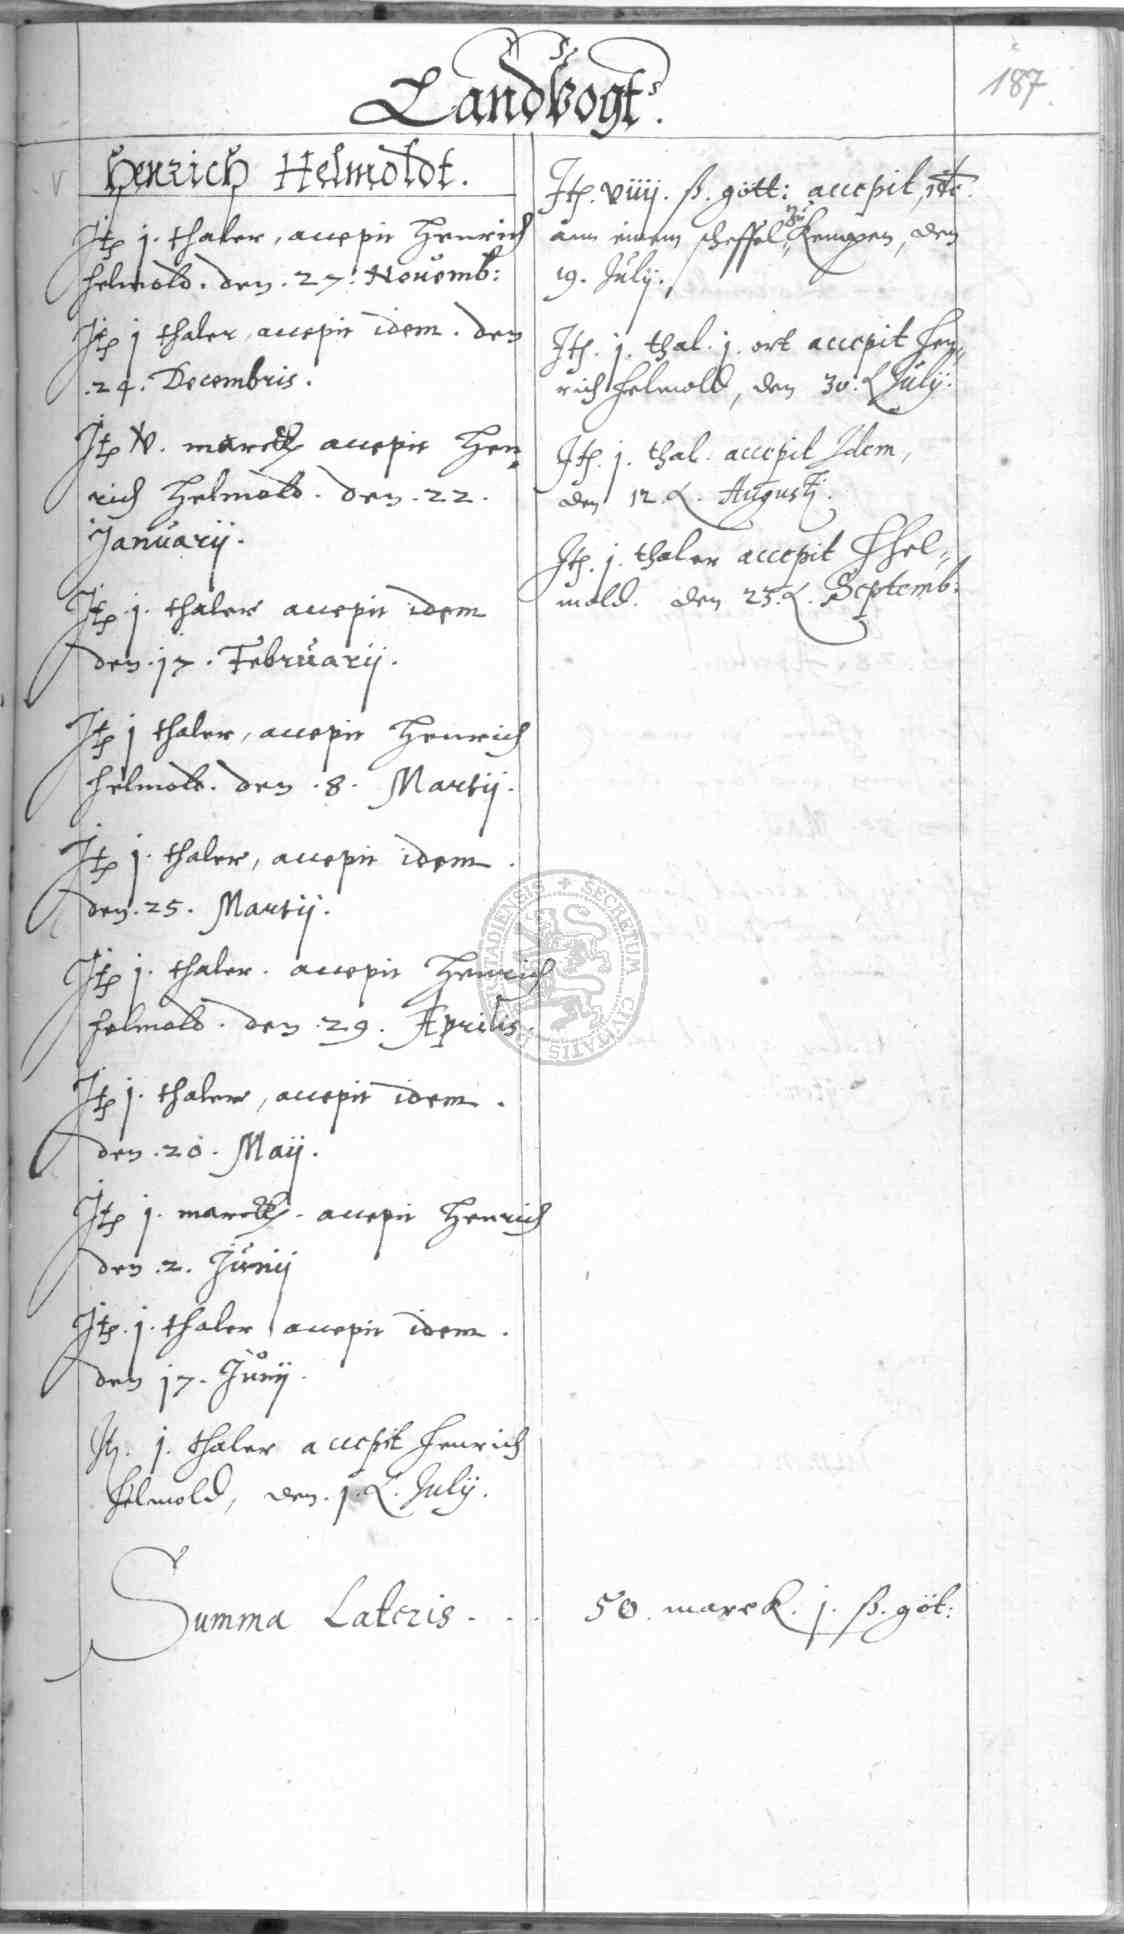 Landvogt.
187.
Henrich Helmoldt.
Itz j. thaler, accepit Henrich
helmold. den. 27. Novemb:
Itz j thaler, accepit idem. den
.24. Decembris.
Itz V. marck accepit Hen„
rich Helmold. den. 22.
Januarij.
Itz .j. thaler accepit idem
den. 17. Februarij.
Itz j thaler, accepit Henrich
helmold. den .8. Martij.
Itz j. thaler, accepit idem.
den. 25. Martij.
Itz j. thaler. accepit Henrich
helmold. den .29. Aprilis.
Itz j. thaler, accepit idem.
den .20. Maij.
Itz j. marck. accepit Henrich
den .2. Junij
Itz. j. thaler accepit idem.
den 17. Junij.
Itz. j. thaler accepit henrich
helmold, den. j. Julij.
Itz. viiij. ß. gött: accepit,
ann einem scheffel, Rougen, den
19. Julij.
Itz. j. thal. j. ort accepit Hen„
rich helmold, den 30. Julij.
Itz. j. thal. accepit Idem,
den 12. Augustj.
Itz. j. thaler accepit Hhel„
mold. den 23. Septemb:
Summa Lateris. . . 50. marck. j. ß. göt:
SECRETUM CIVITATIS